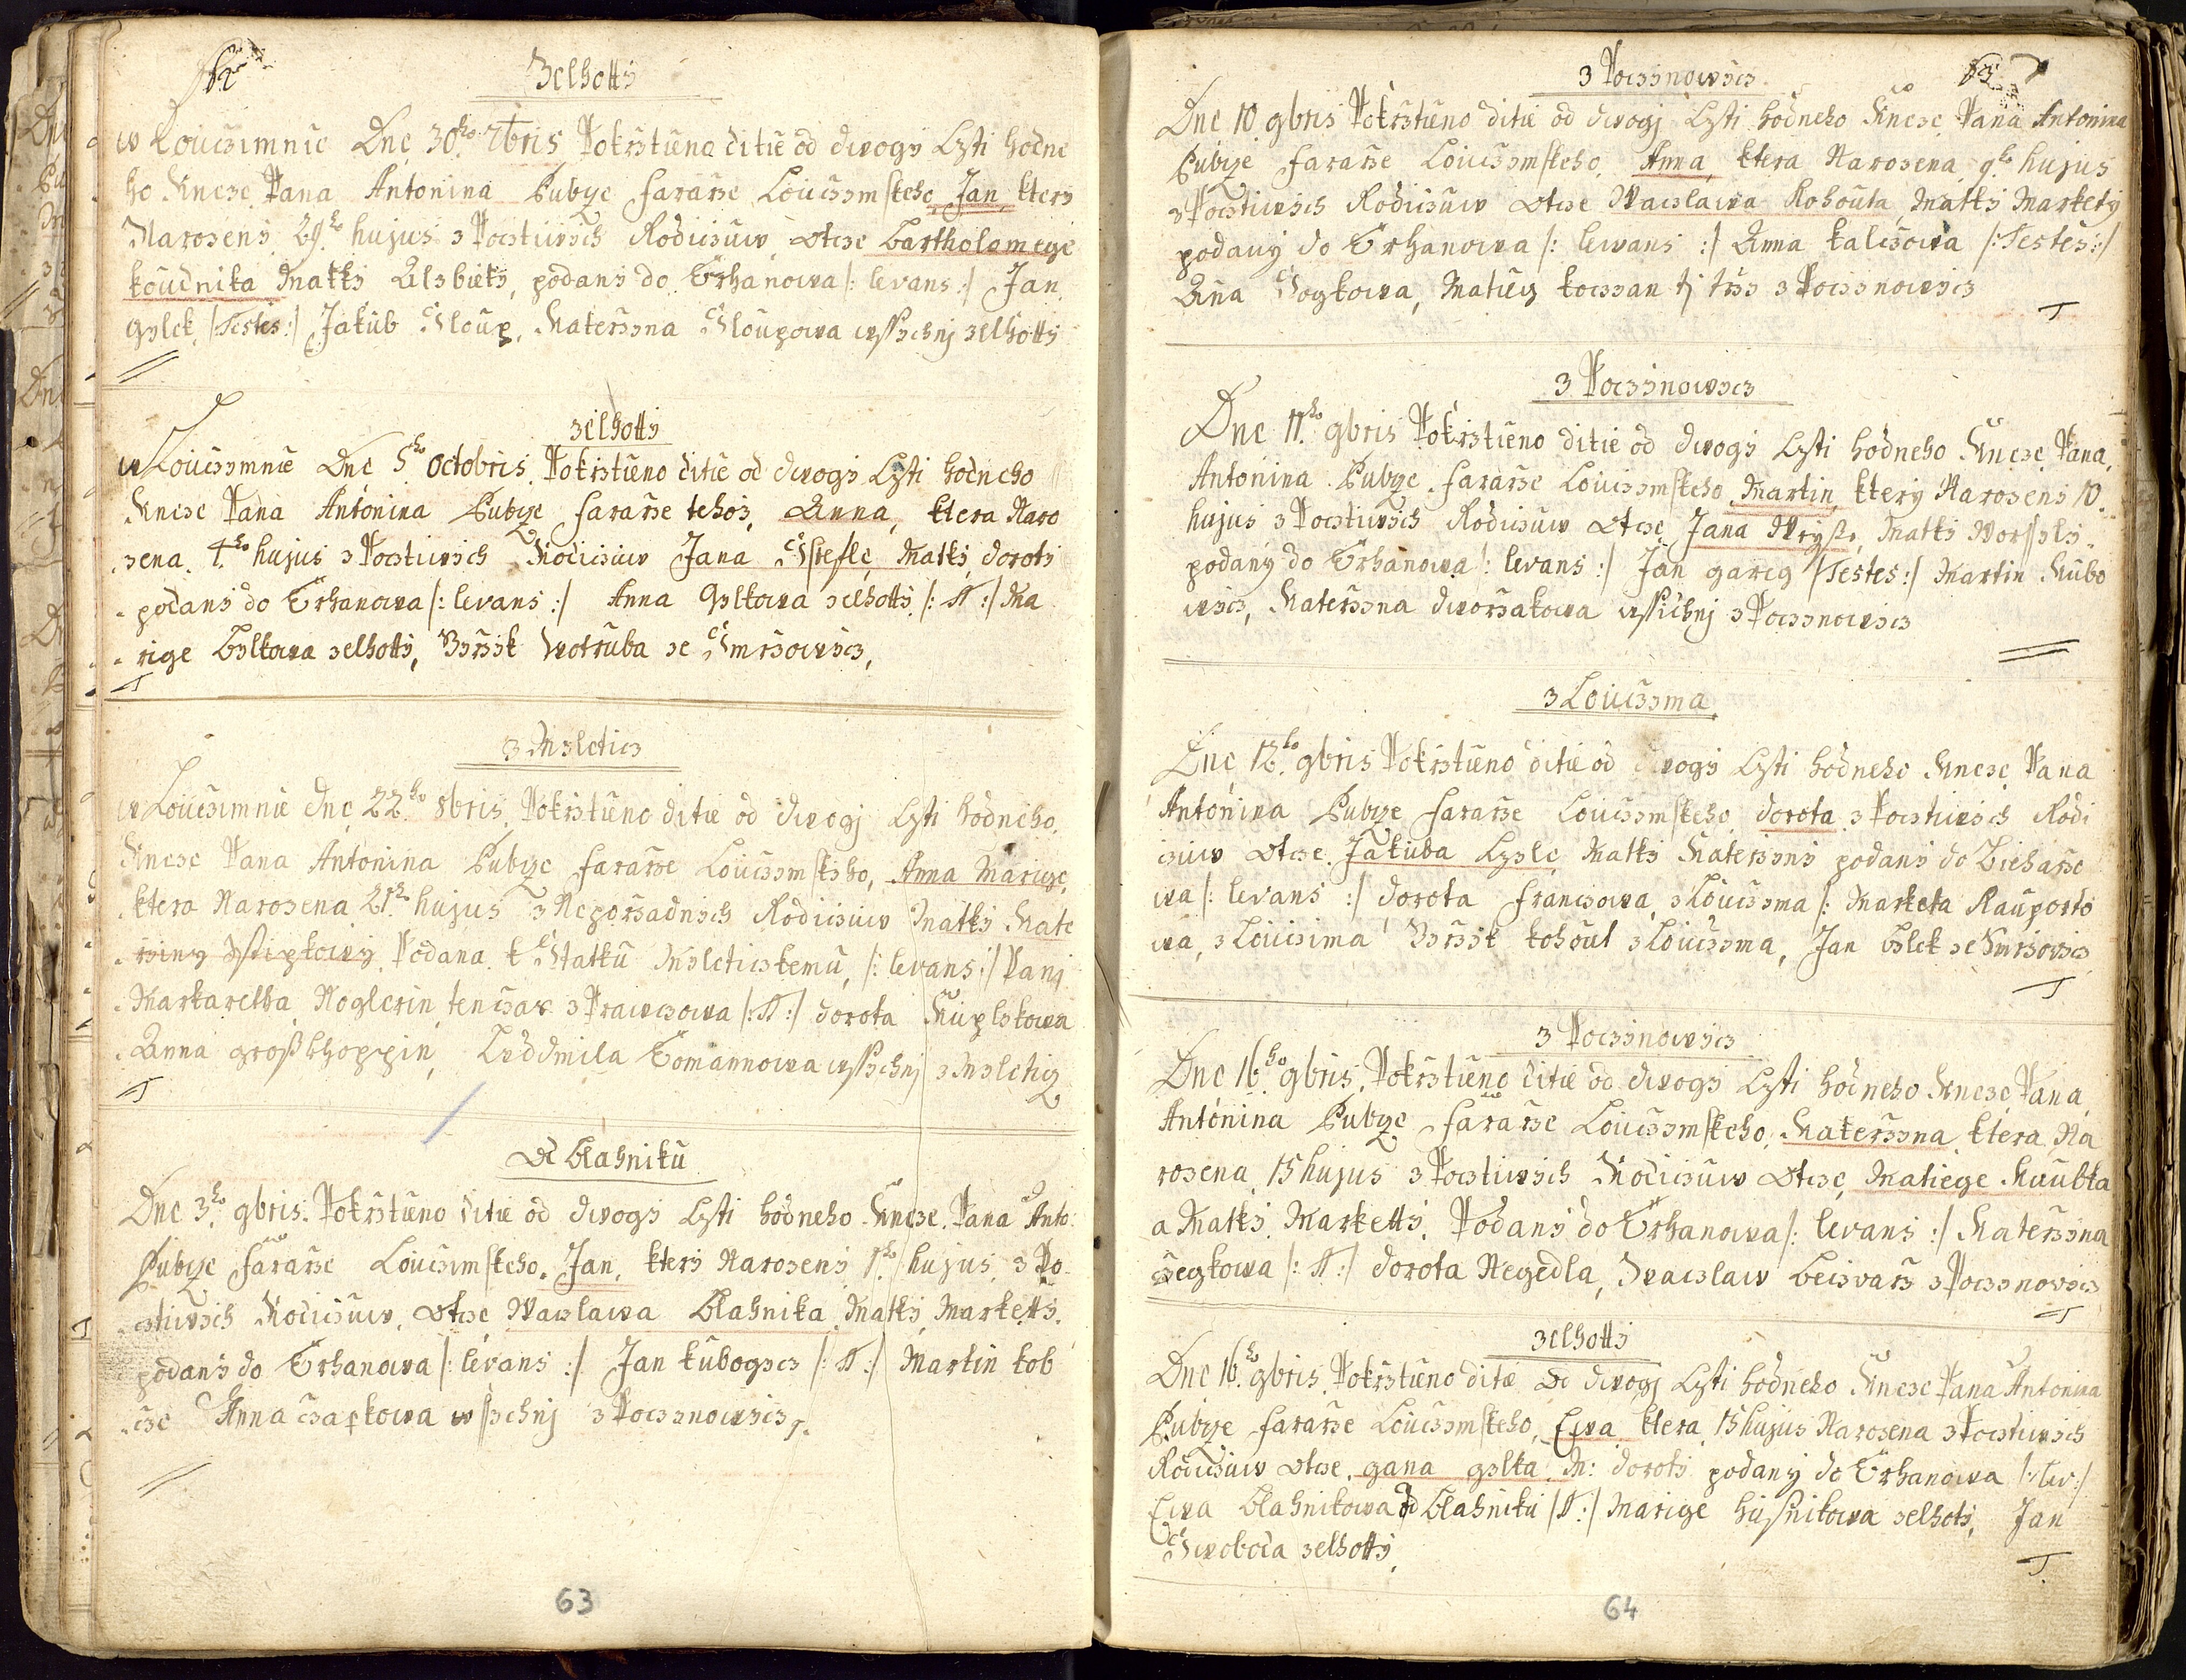 62
Zelhotty
w Louczimnie Dne 30ho 7bris Pokrztieno ditie od dwogy Czti hodne
ho Kneze Pana Antonina Pubyze Fararze Louczimskeho, Jan, ktery
Narozeny 29ho hujus z Poctiwych Rodiczuw Otcze Bartholomege
koudnika Matky Alzbiety, podany do Trhanowa |: levans :| Jan
Gylek, |: Testes :| Jakub Sloup, Katerzyna Sloupowa wssychnj zelhotty
zelhotty
w Louczymnie Dne 5ho Octobris. Pokrztieno ditie od dwogy Czti hodneho
Kneze Pana Antonina Pubyze Fararze tehoz, Anna, ktera Naro
zena 4ho hujus z Poctiwych Rodicziuw Jana Matky doroty
podany do Trhanowa |: levans :| Anna Gylkowa zelhotty |: T :| Ma
rige Bylkowa zelhotty, Wotruba ze Smrzowycz,
z Myleticz
w Louczimnie dne 22ho 8bris. Pokrztieno ditie od dwogj Czti hodneho,
Kneze Pana Antonina Pubyze Fararze Louczymskyho, Anna Marige,
ktera Narozena 21ho hujus z Neporzadnych Rodicziuw Matky Kate
rziny Podana k Statku Myleticzkemu, |: levans :| Panj
Markaretha Noglerin, tenczas z Prawczowa |: T :| dorota
Anna Ludmila Tomannowa wssychnj z Myletiz
Od Blahniku
Dne 3ho 9bris. Pokrztieno ditie od dwogy Czti hodneho Kneze Pana Anto:
Pubyze Fararze Louczimskeho, Jan, ktery Narozeny 1ho hujus, z Po
cztiwych Rodicziuw, Otcze Waczlawa Blahnika, Matky Markety,
podany do Trhanowa |: levans :| Jan kubogycz |: T :| Martin kob
cze Anna czapkowa wssychnj z Pocznowycz,
63
63
z Pocznowycz
Dne 10 9bris Pokrztieno ditie od dwogj Czti hodneho Kneze Pana Antonina
Pubyze Fararze Louczymskeho, Anna, ktera Narozena 9ho hujus
z Pocztiwych Rodicziuw Otcze Waczlawa Kohouta Matky Markety
podany do Trhanowa |: levans :| Anna kalczowa |: Testes :|
Anna Sogkowa, Matieg koczan z Pocznowycz
z Pocznowycz
Dne 11ho 9bris Pokrztieno ditie od dwogy Czti hodneho Kneze Pana,
Antonina Pubyze Fararze Louczymskeho Martin, ktery Narozeny 10.
hujus z Pocztiwych Rodicziuw Otcze Jana Matky Worssyly
podany do Trhanowa |: levans :| Jan gareg |: Testes :| Martin Kubo
wycz, Katerzyna dworzakowa wssichnj z Pocznowycz
z Louczyma
Dne 12ho 9bris Pokrztieno ditie od dwogy Czti hodneho Kneze Pana
Antonina Pubyze Fararze Louczymskeho dorota z Pocztiwych Rodi
cziuw Otcze Jakuba Matky Katerzyny podany do
wa |: levans :| dorota Franczowa z Louczyma |: Marketa Rauporto
wa, z Louczima kohout z Louczyma, Jan Bylek ze Smrzowycz
z Pocznowycz
Dne 16ho 9bris. Pokrztieno ditie od dwogy Czti hodneho Kneze Pana
Antonina Pubyze Fararze Louczymskeho, Katerzyna, ktera Na
rozena 15 hujus z Pocztiwych Rodicziuw Otcze, Matiege Kaubka
a Matky Markety. Podany do Trhanowa |: levans :| Katerzyna
czegkowa |: T :| dorota Negedla, Waczlaw z Pocznowycz
zelhotty
Dne 16ho 9bris. Pokrztieno ditie od dwogj Czti hodneho Kneze Pana Antonina
Pubyze Fararze Louczymskeho, Ewa ktera 15 hujus Narozena z Pocztiwych
Rodicziuw Otcze, gana gylka, M: doroty podany do Trhanowa |: lev: |
Ewa Blahnikowa od Blahniku |: T :| Marige zelhoty, Jan
Swoboda zelhotty,
64